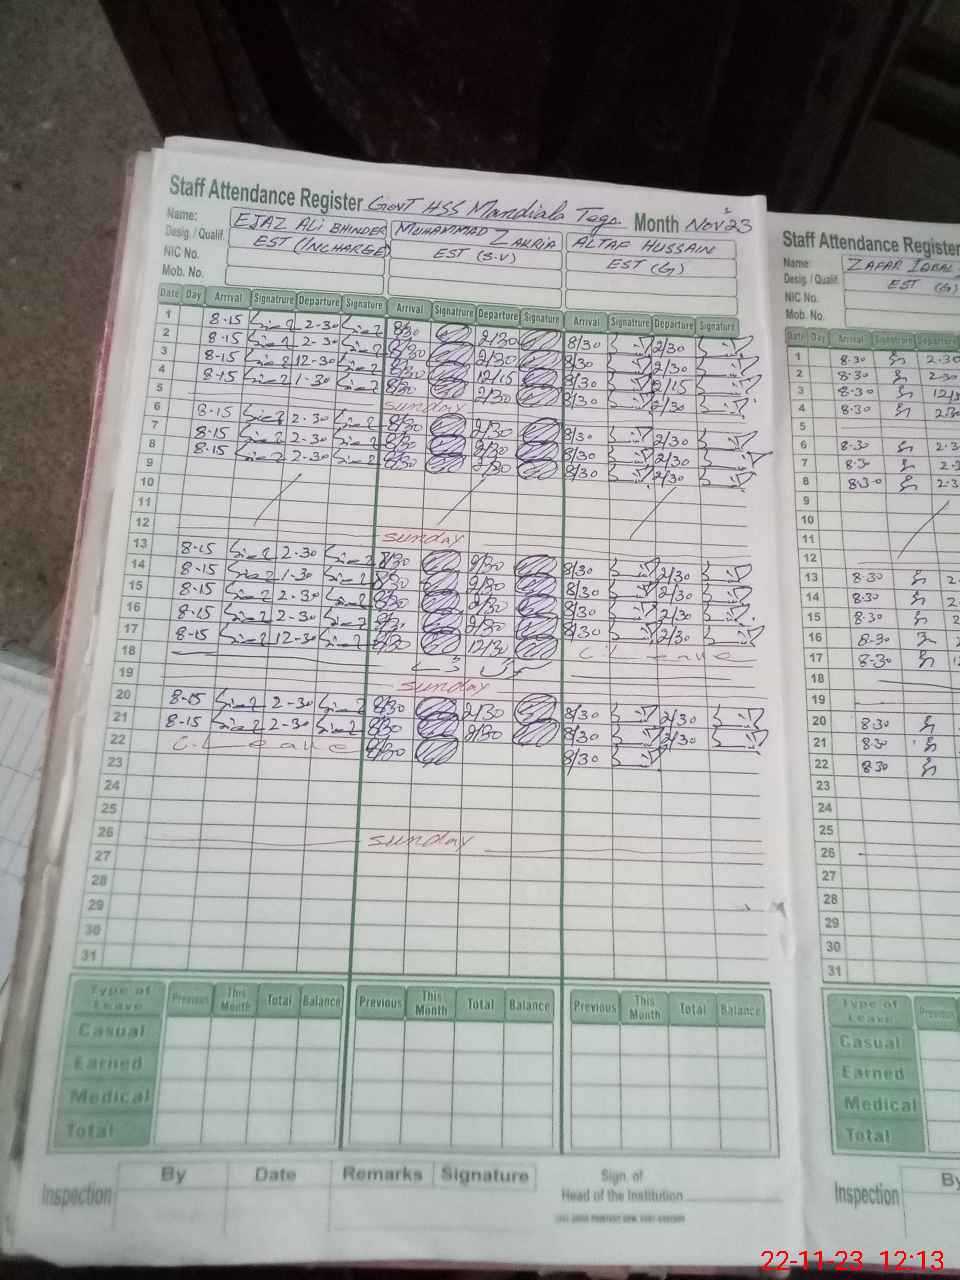 Staff Attendance Register Govt HSS Mandiala Tega. Month Nov 23
Name: EJAZ ALI BHINDER MUHAMMAD ZAKRIA ALTAF HUSSAIN
Desig. / Qualif. EST (INCHARGE) EST (S.V) EST (G)
NIC No.
Mob. No.
Date Day Arrival Signature Departure Signature Arrival Signature Departure Signature Arrival Signature Departure Signature
1 8-15 2-30 8/30 2/30 8/30 2/30
2 8-15 2-30 8/30 2/30 8/30 2/30
3 8-15 12-30 8/30 12/15 8/30
4 8-15 1-30 8/30 2/30 8/30 2/30
5 sunday
6 8-15 2-30 8/30 2/30 8/30 2/30
7 8-15 2-30 8/30 2/30 8/30 2/30
8 8-15 2-30 8/30 2/30 8/30 2/30
9
10
11
12 sunday
13 8-15 2-30 8/30 2/30 8/30 2/30
14 8-15 1-30 8/30 2/30 8/30 2/30
15 8-15 2-30 8/30 2/30 8/30 2/30
16 8-15 2-30 8/30 2/30 8/30 2/30
17 8-15 12-30 8/30 12/30 C. Leave
18
19 sunday
20 8-15 2-30 8/30 2/30 8/30 2/30
21 8-15 2-30 8/30 2/30 8/30 2/30
22 C. Leave 8/30 8/30
23
24
25
26 sunday
27
28
29
30
31
Type of Leave Previous This Month Total Balance Previous This Month Total Balance Previous This Month Total Balance
Casual
Earned
Medical
Total
Inspection By Date Remarks Signature Sign. of Head of the Institution
Staff Attendance Register
Name: ZAFAR IQBAL
Desig. / Qualif. EST (G)
NIC No.
Mob. No.
Date Day Arrival Signature Departure
1 8-30 2-30
2 8-30 2-30
3 8-30
4 8-30 2-30
5
6 8-30
7 8-30
8 8-30
9
10
11
12
13 8-30
14 8-30
15 8-30
16 8-30
17 8-30
18
19
20 8-30
21 8-30
22 8-30
23
24
25
26
27
28
29
30
31
Type of Leave Previous
Casual
Earned
Medical
Total
Inspection By
22-11-23 12:13